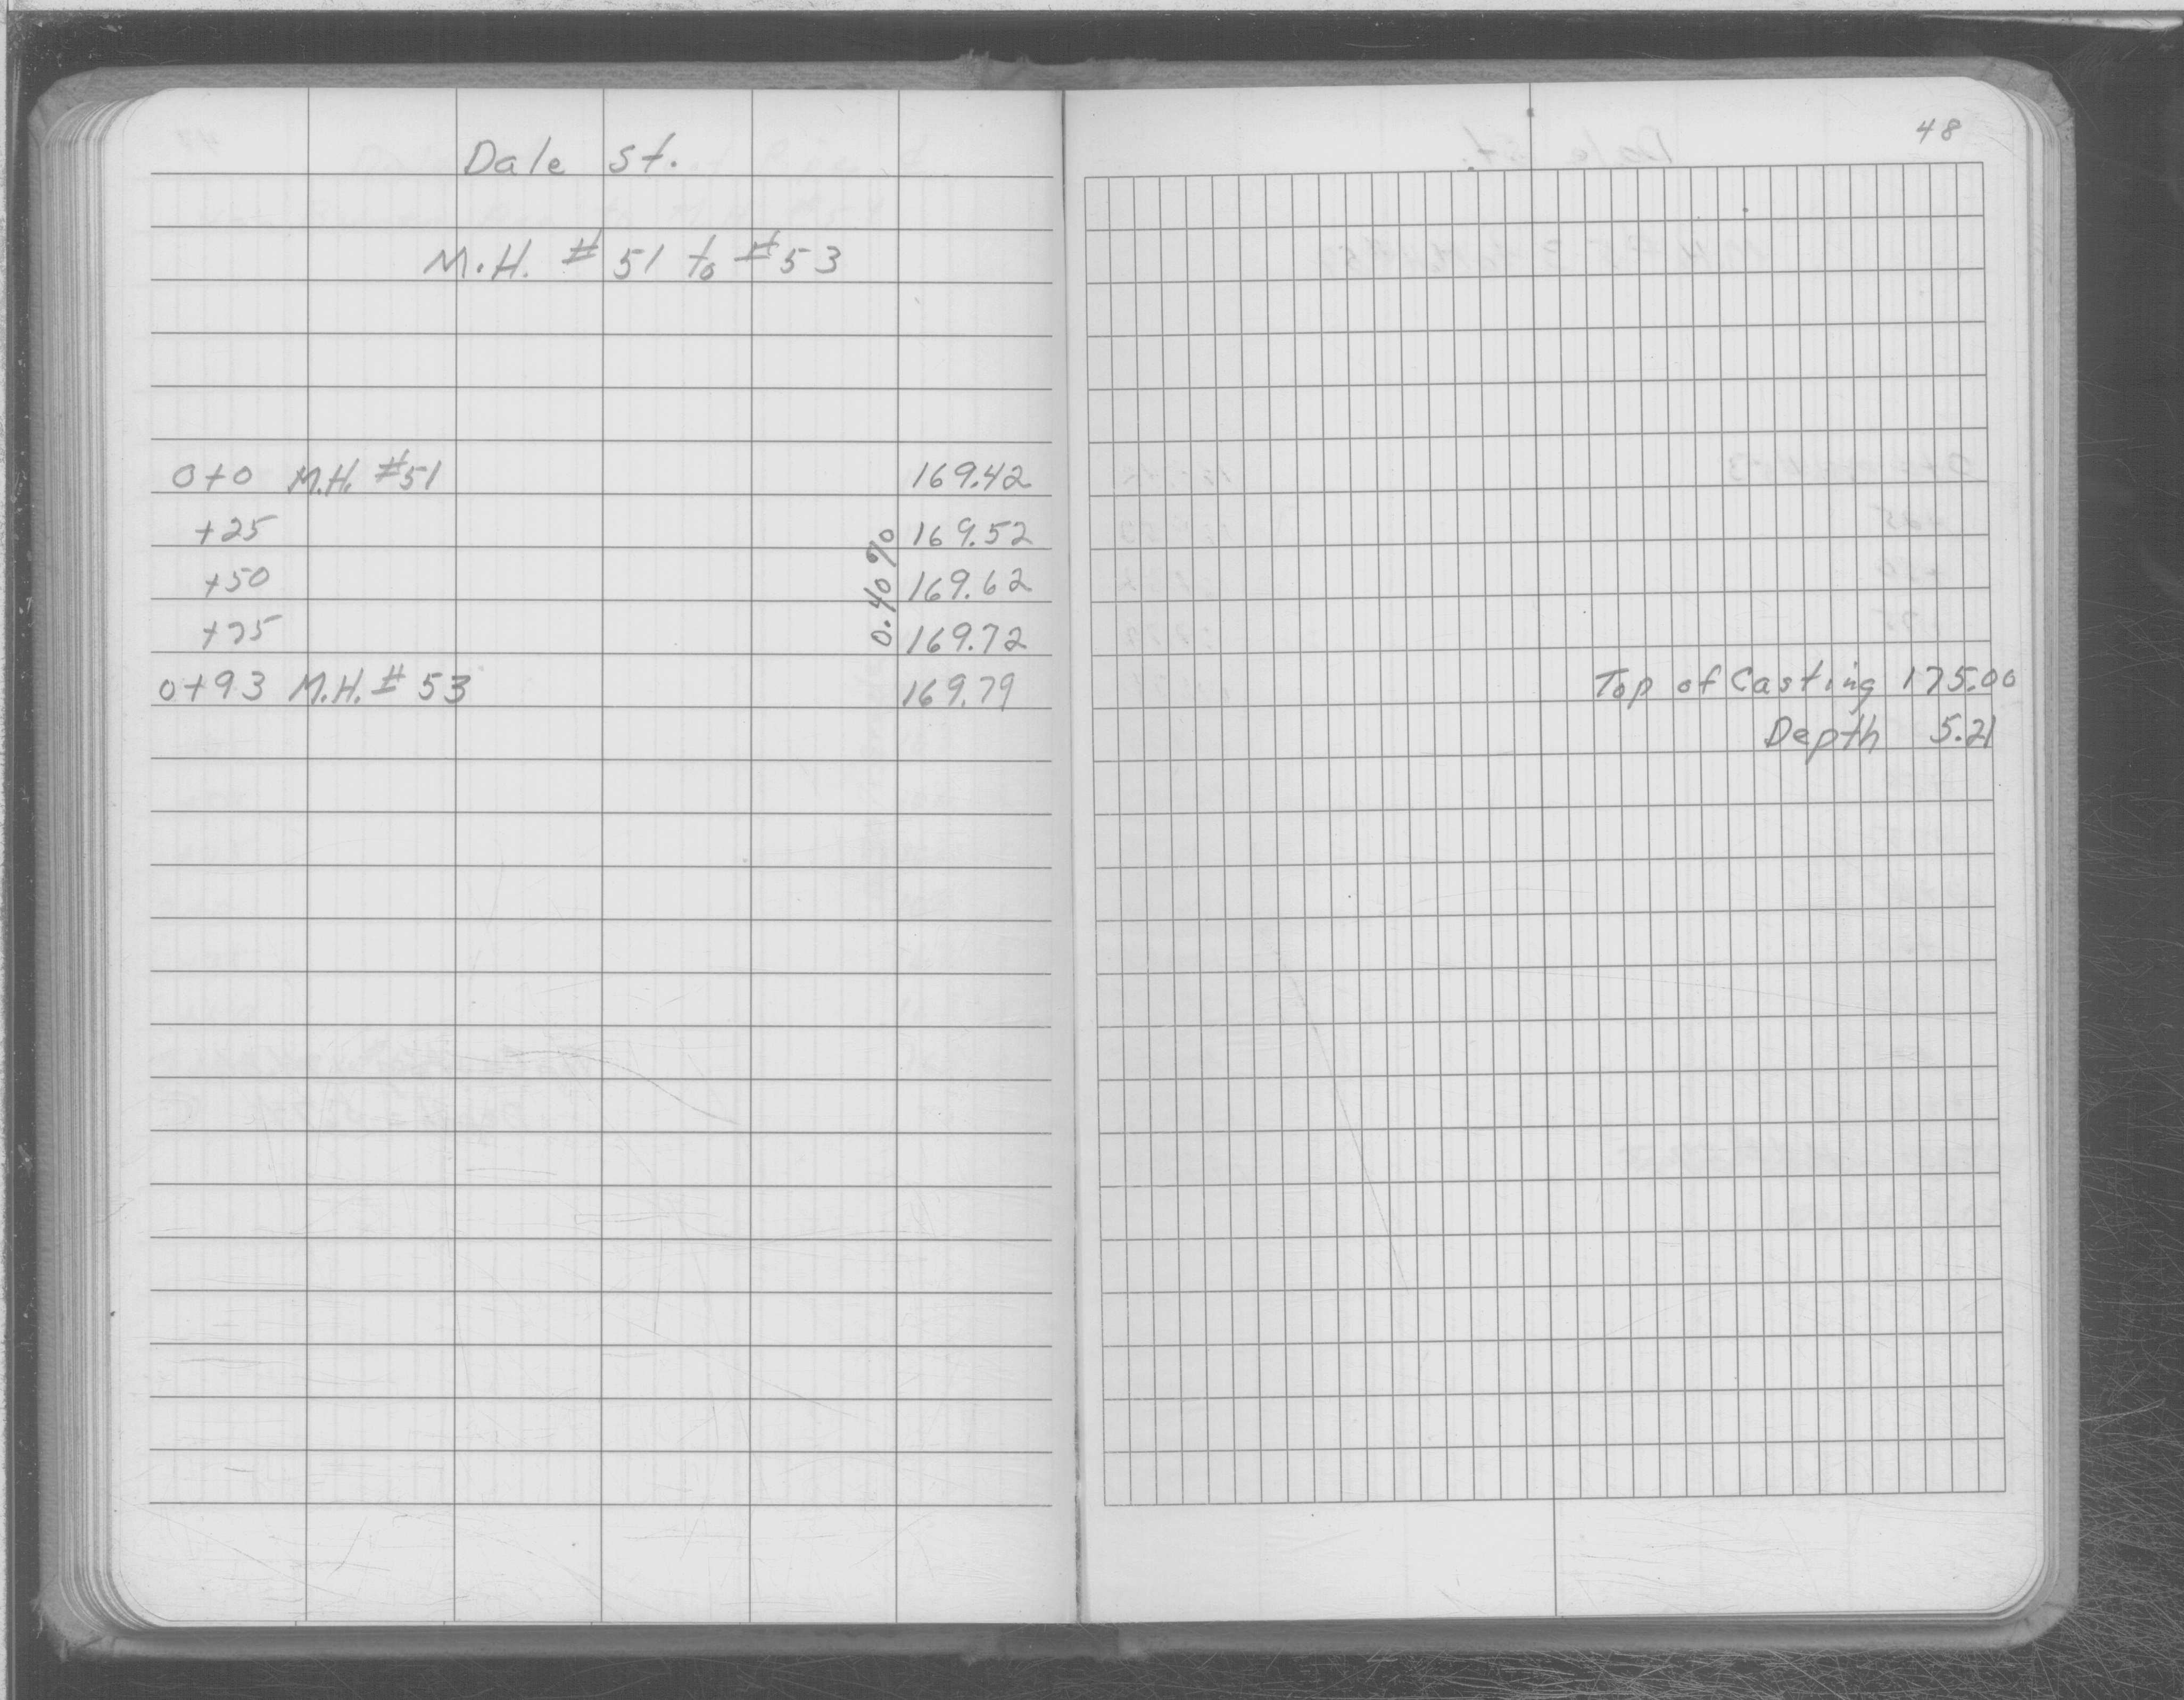 Dale St.
48
M.H. #51 to #53
0+0 M.H. #51 169.42
+25 169.52
+50 169.62
+75 169.72
0.40%
0+93 M.H. #53 169.79 Top of Casting 175.00
Depth 5.21